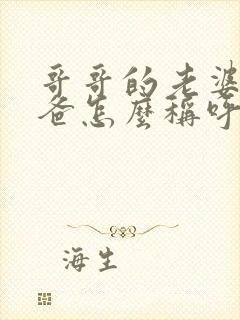 哥哥的老婆
爸怎麼稱呼
海生